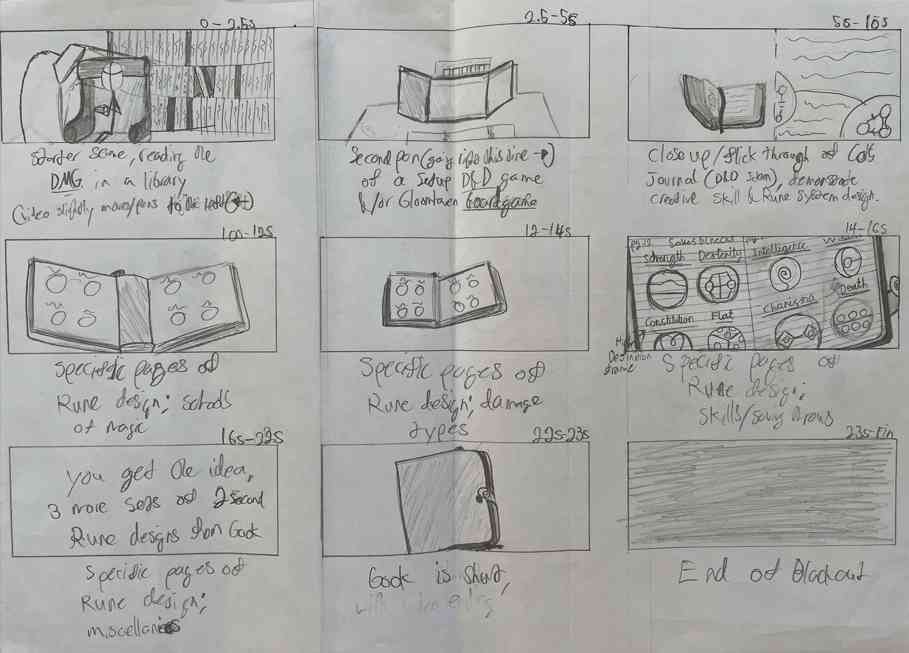 0 - 2.5s
starter scene, reading the
DMG in a library
(video slightly moves/pans to the
2.5-5s
Second pan (going
of a setup D&D game
&/or Gloomhaven boardgame
5s-10s
Close up/flick through of
Journal (D&D
), demonstrate
creative skill & Rune System design.
10s-12s
Specific pages of
Rune design; schools
of magic
12-14s
Specific pages of
Rune design; damage
types
14-16s
Strength
Dexterity
Intelligence
Constitution
Flat
Charisma
Death
High
Definition
drawn
Specific pages of
Rune design;
skills/saving throws
16s-22s
you get the idea,
3 more sets of 2 second
Rune designs from book
Specific pages of
Rune design;
22s-23s
Book is shut,
with video ending
23s-Fin
End of Blackout